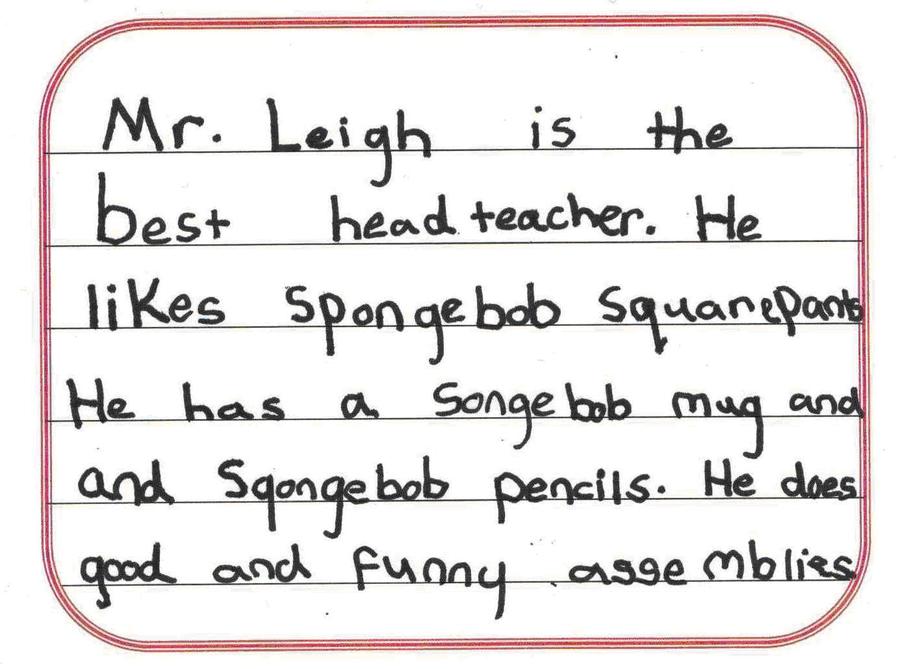 Mr. Leigh is the
best head teacher. He
likes Spongebob Squarepants
He has a Songebob mug and
and Sqongebob pencils. He does
good and funny assemblies